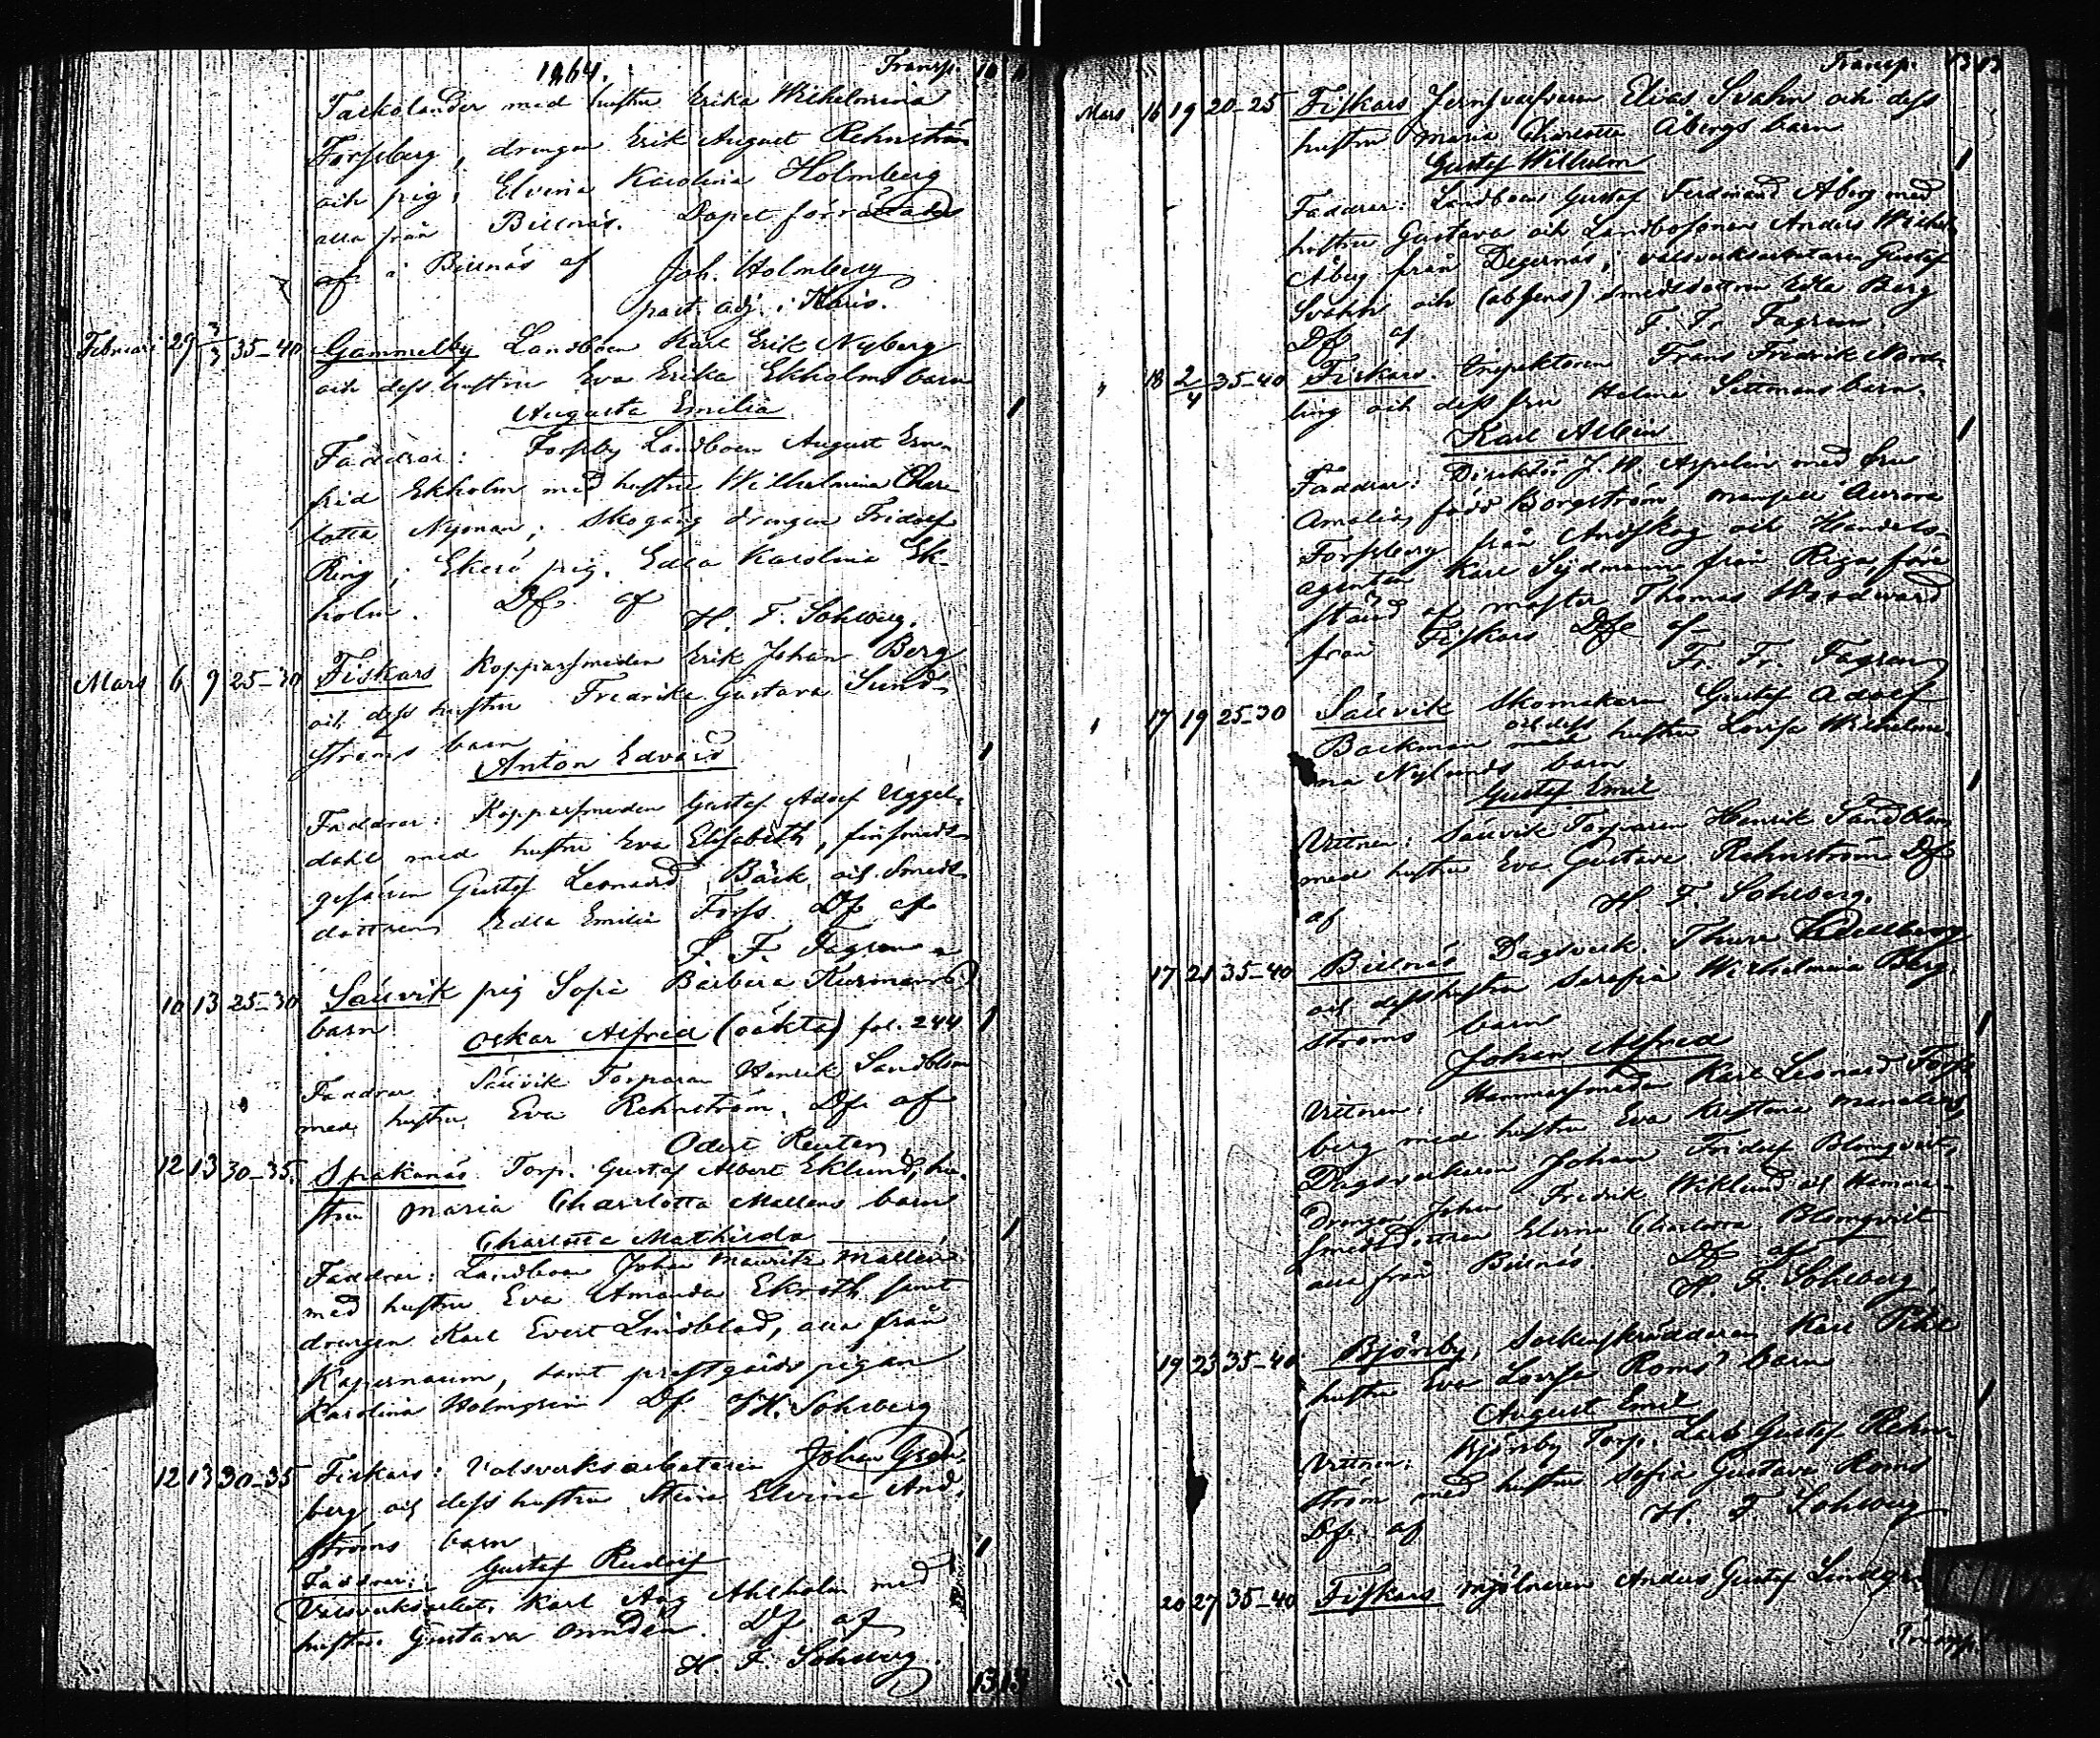 1864. Transp. 10 11
Taskolander med hustru Erika Wilhelmina
Forssberg, drengen Erik August Rehnström
och pig. Elvina Karolina Holmberg
alla från Billnäs. Dopet förrättades
af i Billnäs af Joh. Holmberg
past. adj. i Karis.
Februari 29 3/3 35-40 Gammelby Landboen Karl Erik Nyberg
och dess hustru Eva Erika Ekholms barn
Augusta Emilia 1
Faddrar: Forssby Landboen August Ern-
frid Ekholm med hustru Wilhelmina Char-
lotta Nyman; Skogäng drengen Fridolf
Ring; Ekerö pig. Edla Karolina Ek-
holm. Df af
H. F. Sohlberg.
Mars 6 9 25-30 Fiskars Kopparsmeden Erik Johan Berg
och dess hustru Fredrika Gustava Sund-
ströms barn
Anton Edvard 1
Faddrar: Kopparsmeden Gustaf Adolf Uggel-
dahl med hustru Eva Elisabeth, finsmeds
gesällen Gustaf Leonard Bäck och Smeds
dottren Edla Emilia Forss. Df af
F. F. Fagren
10 13 25-30 Sällvik pig Sofia Barbara Kurmans
barn
Oskar Alfred (oäkta) fol. 244 1
Faddrar: Sällvik Torparen Henrik Sandblom
med hustru Eva Rehnström. Df af
Odert Reuter
12 13 30-35. Spakanäs Torp. Gustaf Albert Eklund, hu-
stru Maria Charlotta Malléns barn
Charlotta Mathilda 1
Faddrar: Landboen Johan Maurits Mallén
med hustru Eva Amanda Ekroth samt
drengen Karl Evert Lindblad, alla från
Kapernaum, samt prestgårds pigan
Karolina Holmgrén Df H. Sohlberg
12 13 30-35 Fiskars: Valsverksarbetaren Johan Grön-
berg och dess hustru Stina Elvina And-
ströms barn
Gustaf Rudolf 1
Faddrar:
Valsverksarbet. Karl Aug Ahlholm med
hustru Gustava Df af
H. F. Sohlberg.
13 13
Transp. 13 13
Mars 16 19 20-25 Fiskars Jernsvarfvaren Elias Svahn och dess
hustru Maria Charlotta Åbergs barn
Gustaf Wilhelm 1
Faddrar: Landboen Gustaf Ferdinand Åberg med
hustru Gustava och Landbosonen Anders Wilhelm
Åberg från Degernäs; valsverksarbetaren Gustaf
Svahn och (absens) smedsdottren Edla Berg
Df af F. Fr. Fagren.
" 18 2/4 35-40 Fiskars. Inspektoren Frans Fredrik Nord-
ling och dess fru Helena Settmans barn.
Karl Albin 1
Faddrar: Direktör J. W. Aspelin med fru
Amalia, född Borgström, mamsell Aurora
Forssberg från Antskog och Handels-
agenten Karl Sydmann från Riga, före
städ af Master Thomas Woodward
från Fiskars Df af
Fr. Fr. Fagren
" 17 19 25-30 Sällvik Skomakaren Gustaf Adolf
och dess
Backman med hustru Lovisa Wilhelmi-
na Nylunds barn
Gustaf Emil 1
Vittnen: Sällvik Torparen Henrik Sandblom
med hustru Eva Gustava Rehnström Df
af H. F. Sohlberg.
17 21 35-40 Billnäs Dagsverk. Thure
och dess hustru Serafia Wilhelmina Berg-
ströms barn
Johan Alfred 1
Vittnen: Hammarsmeden Karl Leonard Forss-
berg med hustru Eva Kristina
Dagsverkaren Johan Fridolf Blomqvist,
Drengen Johan Fredrik Wiklund och Hammar-
smedsdottren Elvina Charlotta Blomqvist
alla från Billnäs. Df af
H. F. Sohlberg
19 25 35-40 Björsby, Sockenskräddaren Karl Pihl
hustru Eva Lovisa Roms barn
August Emil 1
Vittnen: Björsby Torp. Lars Gustaf Rehn-
ström med hustru Sofia Gustava Roms
Df. af H. F. Sohlberg
20 27 35-40 Fiskars Mjölnaren Anders Gustaf Lindgr
Transp.